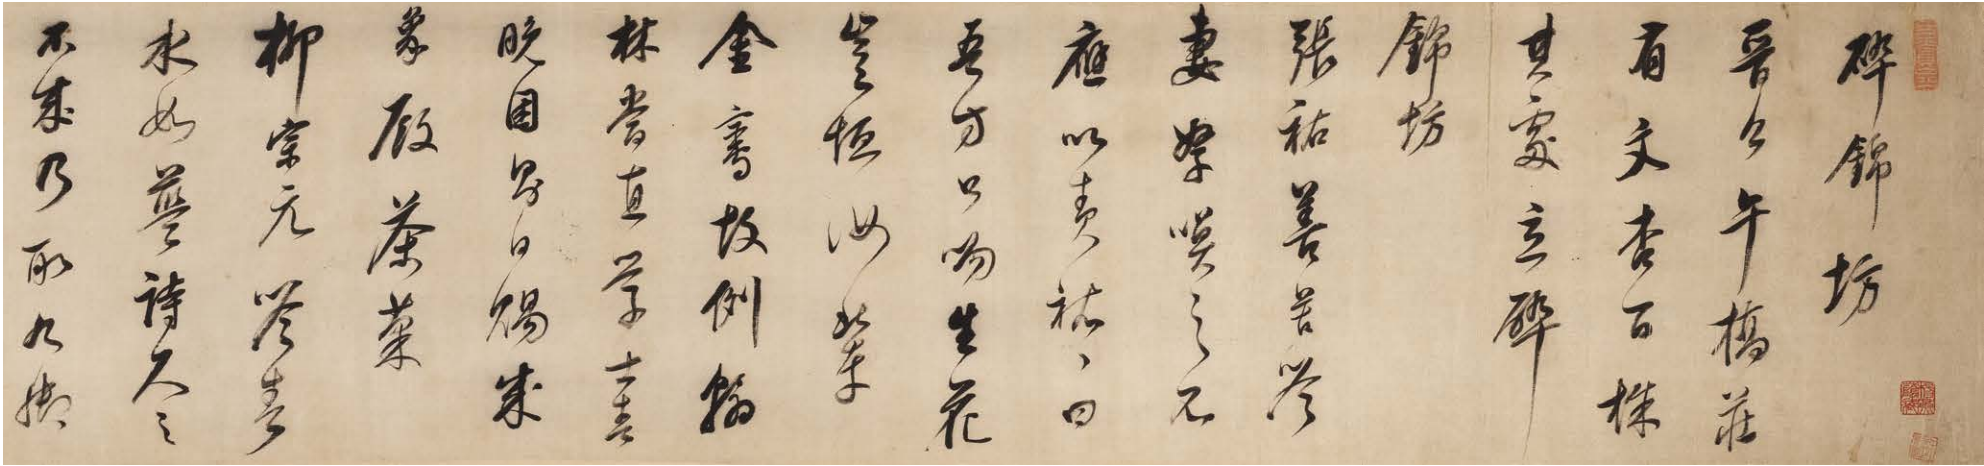 碎錦坊
晉公午橋莊
有文杏百株
其處立碎
錦坊
張祐善苦吟
妻孥喚之不
應以責祐祐曰
吾方口吻生花
豈恤汝輩
金鑾故例翰
林當直學士春
晚困則日賜成
象殿茶菓
柳宗元吟春
水如藍詩久之
不成乃取九腳